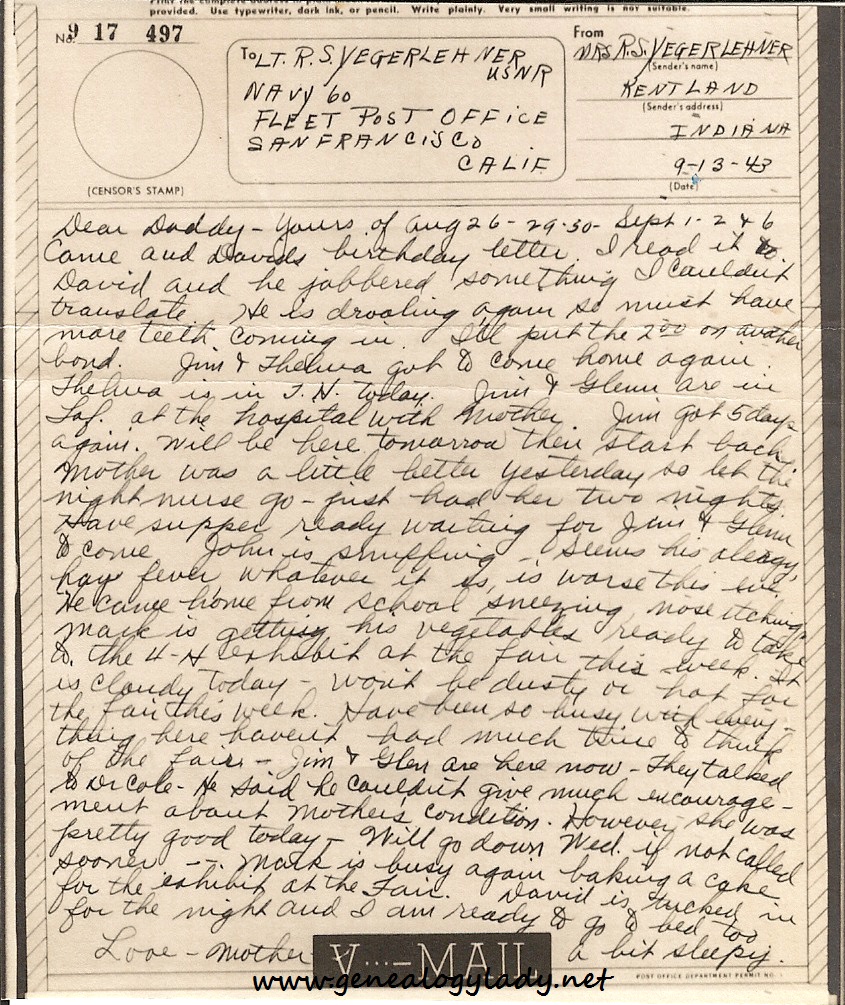 provided. Use typewriter, dark ink, or pencil. Write plainly. Very small writing is not suitable.
No. 9 17 497
(CENSOR'S STAMP)
To LT. R. S. YEGERLEHNER
USNR
NAVY 60
FLEET POST OFFICE
SAN FRANCISCO
CALIF
From
MRS R.S. YEGERLEHNER
(Sender's name)
KENTLAND
(Sender's address)
INDIANA
9-13-43
(Date)
Dear Daddy - Yours of Aug 26 - 29-30 - Sept 1-2 & 6
Came and Davids birthday letter. I read it to
David and he jabbered something I couldn't
translate. He is drooling again so must have
more teeth coming in. I'll put the 2 00 on another
bond. Jim & Thelma got to come home again.
Thelma is in T. H. today. Jim & Glenn are in
Laf. at the hospital with Mother. Jim got 5 days
again. Will be here tomorrow then start back.
Mother was a little better yesterday so let the
night nurse go - just had her two nights.
Have supper ready waiting for Jim & Glenn
to come. John is snuffing - Seems his alergy,
hay fever whatever it is, is worse this eve.
He came home from school sneezing, nose itching
Mark is getting his vegetables ready to take
to the 4-H exhibit at the fair this week. It
is cloudy today - Won't be dusty or hot for
the fair this week. Have been so busy with every-
thing here havent had much time to think
of the fair - Jim & Glen are here now - They talked
to Dr Cole - He said he couldn't give much encourage-
ment about Mother's condition. However she was
pretty good today - Will go down Wed. if not called
sooner - . Mark is busy again baking a cake
for the exhibit at the Fair. David is tucked in
for the night and I am ready to go to bed too
Love - Mother a bit sleepy.
V···—MAIL
POST OFFICE DEPARTMENT PERMIT NO.
www.genealogylady.net